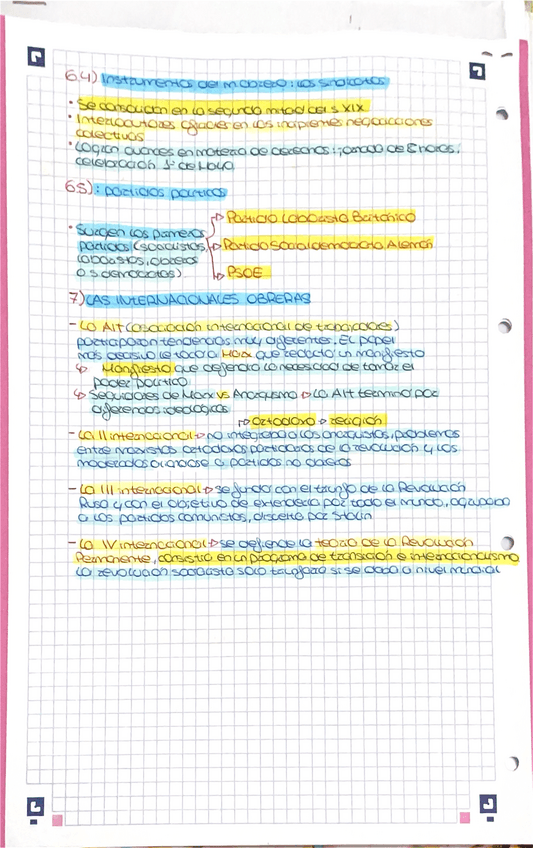 6.4) Instrumentos del m obrero: los sindicatos
• Se consolidan en la segunda mitad del s XIX
• Interlocutores eficaces en las incipientes negociaciones
colectivas
• Logran avances en materia de derechos: jornada de 8 horas,
celebración 1º de Mayo
6.5): partidos políticos
• Surgen los primeros
partidos (socialistas,
laboastas, obreros
o s.demócratas)
↳ Partido Laboasta Britónico
↳ Partido Socialdemocrata Alemán
↳ PSOE
7) LAS INTERNACIONALES OBRERAS
- La AIT (asociación internacional de trabajadores)
participaron tendencias muy diferentes. El papel
más decisivo le tocó a Marx que redactó un manifiesto
↳ Manifiesto que defendía la necesidad de tomar el
poder político
↳ Seguidores de Marx vs Anarquismo → La AIT terminó por
diferencias ideológicas
↱ ortodoxo → religión
- La II internacional → no integraba a los anarquistas, problemas
entre marxistas ortodoxos partidarios de la revolución y los
moderados a partidos no obreros
- La III internacional → se funda con el triunfo de la Revolución
Rusa y con el objetivo de extenderla por todo el mundo, agrupaba
a los partidos comunistas, disuelta por Stalin
- La IV internacional → se defiende la teoría de la Revolución
Permanente, consistió en un programa de transición e internacionalismo
La revolución socialista solo triunfaría si se daba a nivel mundial